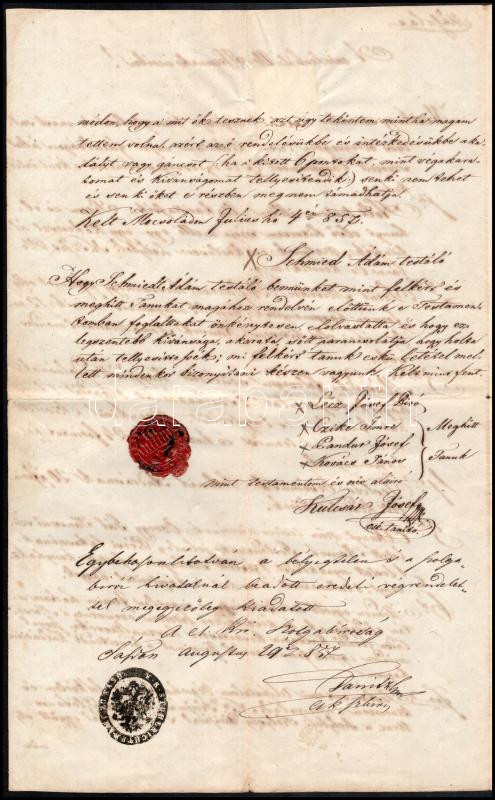 módon, hogy a mit ők tesznek azt úgy tekintem mintha magam
tettem volna, azért azó rendelésükbe és intézkedésükbe aka-
dályt vagy gáncsot (:ha a kitett 6 pontokat, mint végakara-
tomat és kívánságomat tellyesitendik:) senki nem tehet
és senki őket e részben meg nem támadhatja.
Kelt Mocsoládon Julius hó 4én 857.
X Schmied Ádám testáló
Hogy Schmied Ádám testáló bennünket mint felkért és
meghitt Tanukat magához rendelvén előttünk e Testamen-
tomban foglaltakat önkénykesen, elolvastatta és hogy ez
legszentebb kivánsága, akarata, sőtt parancsolatja, hogy holta
után tellyesittessék; mi felkért tanuk eskü letétel mel-
lett mindenkor bizonyítani készen vagyunk, kelt mint fent.
X Lecz Jósef Biró
X Czike Imre
X Pandur Jósef
X Kovács János
Meghitt
Tanuk
mint testamentom és név aláíró
Kulcsár Jósef mk
oskt. tanító.
Egybehasonlitatván a bélyegtelen és a szolga-
birói hivatalnál beadott eredeti végrendelet-
tel megegyezőleg kiadatott
A cs. kir. Szolgabiróság
Augustus 29én 857